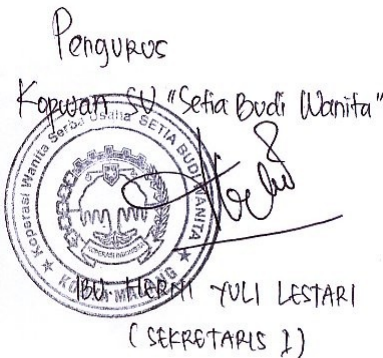 Pengurus
Kopwan SU "Setia Budi Wanita"
Koperasi Wanita Serba Usaha SETIA BUDI WANITA
KOPERASI INDONESIA
KOTA MALANG
IBU HERNI YULI LESTARI
(SEKRETARIS I)